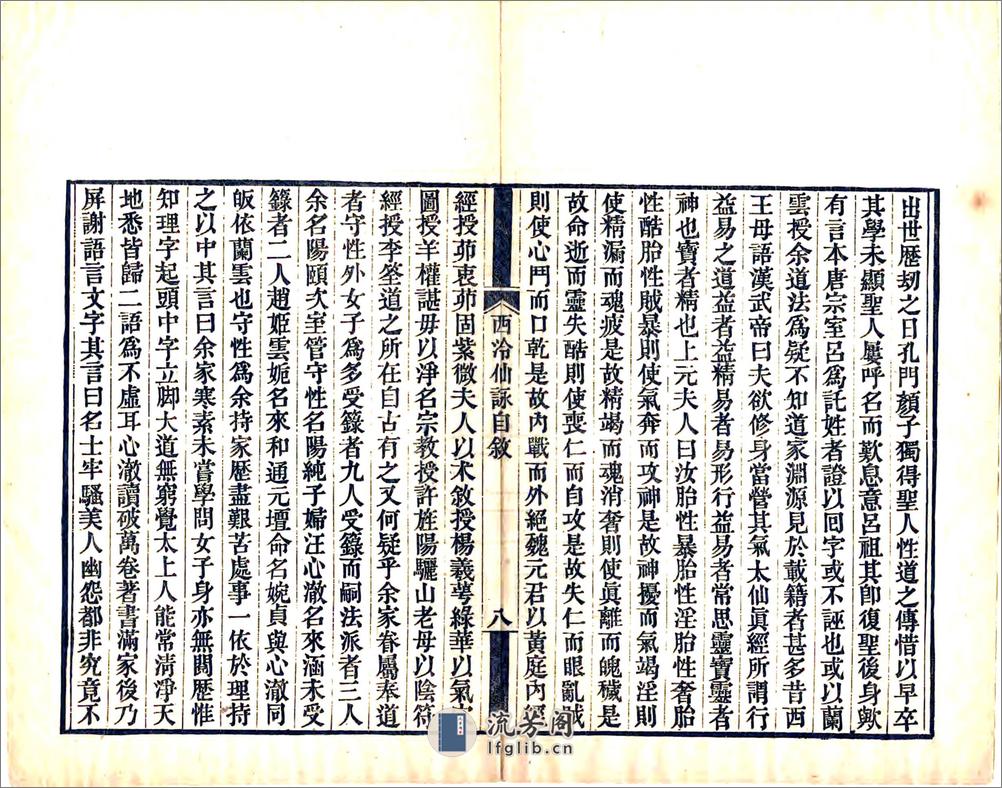 出世歷刼之日孔門顏子獨得聖人性道之傳惜以早卒
其學未顯聖人屢呼名而歎息意呂祖其卽復聖後身歟
有言本唐宗室呂爲託姓者證以回字或不誣也或以蘭
雲授余道法爲疑不知道家淵源見於載籍者甚多昔西
王母語漢武帝曰夫欲修身當營其氣太仙眞經所謂行
益易之道益者益精易者易形行益易者常思靈寶靈者
神也寶者精也上元夫人曰汝胎性暴胎性淫胎性奢胎
性酷胎性賊暴則使氣奔而攻神是故神擾而氣竭淫則
使精漏而魂疲是故精竭而魂消奢則使眞離而魄穢是
故命逝而靈失酷則使喪仁而自攻是故失仁而眼亂賊
則使心鬥而口乾是故內戰而外絕魏元君以黃庭內經
西泠仙詠自敘
八
經授茆衷茆固紫微夫人以朮敘授楊羲萼綠華以氣穴
圖授羊權諶母以淨名宗教授許旌陽驪山老母以陰符
經授李筌道之所在自古有之又何疑乎余家眷屬奉道
者守性外女子爲多受籙者九人受籙而嗣法派者三人
余名陽頤次室管守性名陽純子婦汪心澈名來涵未受
籙者二人趙姬雲妮名來和通元壇命名婉貞與心澈同
皈依蘭雲也守性爲余持家歷盡艱苦處事一依於理持
之以中其言曰余家寒素未嘗學問女子身亦無閱歷惟
知理字起頭中字立脚大道無窮覺太上人能常清淨天
地悉皆歸二語爲不虛耳心澈讀破萬卷著書滿家後乃
屏謝語言文字其言曰名士牢騷美人幽怨都非究竟不
流芳阁
lfglib.cn